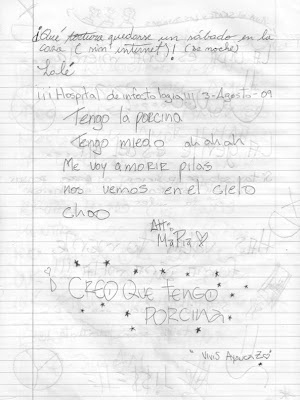 ¡Que tortura quedarse un sábado en la
casa (sin internet)! (de noche)
Lalé
¡¡¡Hospital de infectología!!! 3-Agosto-09
Tengo la porcina
Tengo miedo ah ah ah
Me voy a morir pilas
nos vemos en el cielo
chao
Att:
MaPia
CREO QUE TENGO
PORCINA